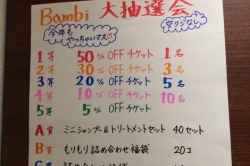 Bambi 大抽選会
今年も
やっちゃいマス
空クジなし
1等 50% OFFチケット 1名
2等 30% OFFチケット 3名
3等 20% OFFチケット 5名
4等 10% OFFチケット 10名
5等 5% OFFチケット
A賞 ミニシャンプー&トリートメントセット 40セット
B賞 もりもり詰め合わせ福袋 20コ